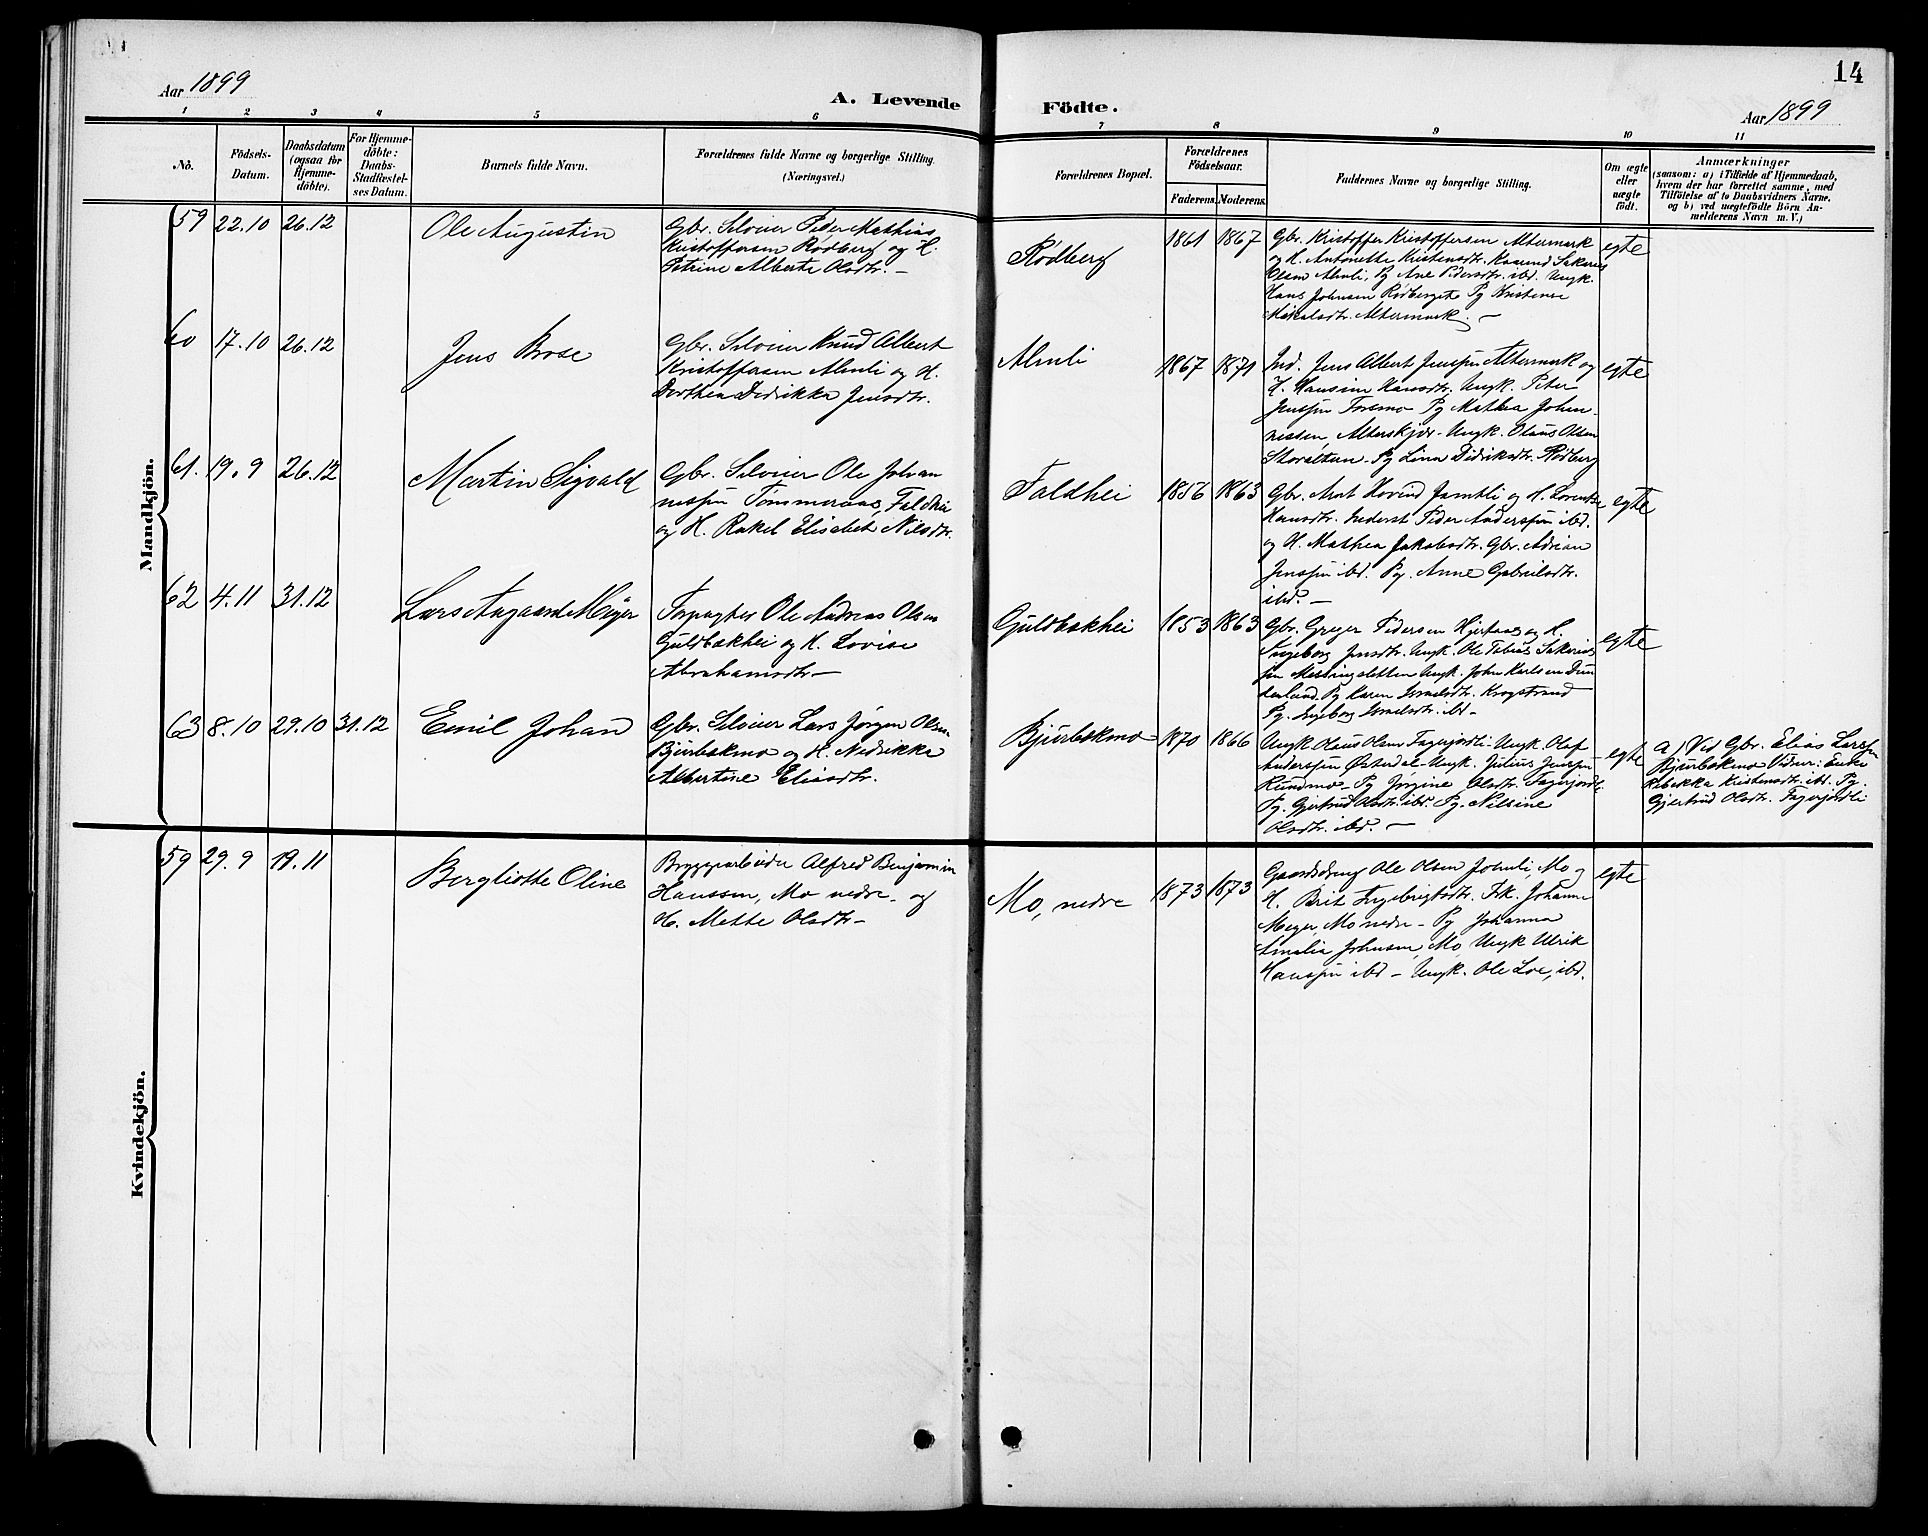 Aar 1899
A. Levende
Födte.
14
Aar 1899
1 2 3 4 5 6 7 8 9 10 11
No.
Födsels-
Datum.
Daabsdatum
(ogsaa for
Hjemme-
döbte).
For Hjemme-
döbte:
Daabs-
Stadfæstel-
ses Datum.
Barnets fulde Navn.
Forældrenes fulde Navne og borgerlige Stilling.
(Næringsvei.)
Forældrenes Bopæl.
Forældrenes
Födselsaar.
Faderens.
Moderens.
Faddernes Navne og borgerlige Stilling.
Om ægte
eller
uægte
födt.
Anmærkninger
(saasom: a) i Tilfælde af Hjemmedaab,
hvem der har forrettet samme, med
Tilföielse af to Daabsvidners Navne,
og b) ved uægtefödte Börn An-
melderens Navn m. V.)
Mandkjön.
59 22.10 26.12
Ole Augustin
Gbr. Selveier Peder Mathias
Kristoffersen Rødberg og H.
Petrine Alberte Olsdtr. –
Rødberg
1861 1867
Gbr. Kristoffer Kristoffersen Altermark
og H. Antonette Kristensdtr. Kaarmd Sakarias
Olsen Almli, Pg Ane Pedersdtr. ibd. Ungk.
Hans Johnsen Rødberget Pg Kristense
Mikalsdtr. Altermark. –
egte
60 17.10 26.12
Jens Brose
Gbr. Selveier Knud Albert
Kristoffersen Almli og H.
Dorthea Didrikka Jensdtr.
Almli
1867 1871
Ind. Jens Albert Jenssen Altermark og
H. Hansine Hansdtr. Ungk. Peter
Jenssen Forsmo Pg Mathea Johan-
nessen, Alterskjær – Ungk. Olaus Olsen
Storalteren – Pg Lina Didriksdtr. Rødberg
egte
61. 19.9 26.12
Martin Sigvald
Gbr. Selveier Ole Johan
nessen Tømmeraas, Faldhei
og H. Rakel Elisabet Nilsdtr.
Faldhei
1856 1863
Gbr. Arnt Hovind Jamtli og H. Lorentse
Hansdtr. Inderst Peder Anderssen ibd.
og H. Mathea Jakobsdtr. Gbr. Adrian
Jenssen ibd. Pg. Anne Gabrielsdtr.
ibd. –
egte
62 4.11 31.12
Lars Aagaard Meyer
Forpagter Ole Andreas Olsen
Guldbakhei og H. Lovise
Abrahamsdtr –
Guldbakhei
1853 1863
Gbr. Greger Pedersen Hjertaas og H.
Ingeborg Jensdtr. Ungk. Ole Tobias Sakarias
sen Messingsletten Ungk. John Karlsen Dun
derland Pg Karen Israelsdtr. Krogstrand
Pg. Ingeborg Israelsdtr. ibd –
egte
63 8.10 29.10 31.12
Emil Johan
Gbr. Selveier Lars Jørgen Olsen
Bjurbækmo og H. Nedrikke
Albertine Eliasdtr.
Bjurbækmo
1870 1866
Ungk Olaus Olsen Fagerjordli – Ungk. Olaf
Anderssen Østerdal – Ungk. Julius Jenssen
Rundmo – Pg Jørgine Olsdtr. Fagerjordli
Pg. Gjertrud Olsdtr. ibd. Pg. Nilsine
Olsdtr. ibd. –
egte
a) Ved Gbr. Elias Larssen
Bjurbækmo Vidner: Enke
Rebekka Kristensdtr. ibd. Pg.
Gjertrud Olsdtr. Fagerjordli
Kvindekjön.
59 29.9 19.11
Bergliotte Oline
Bryggearbeider Alfred Benjamin
Hanssen, Mo nedre – og
H. Mette Olsdtr –
Mo, nedre
1873 1873
Gaardsdreng Ole Olsen Johnli, Mo og
H. Brit Ingebrigtsdtr. Frk. Johanne
Meyer, Mo nedre – Pg Johanna
Amalia Johnsen, Mo, Ungk Ulrik
Hanssen ibd – Ungk. Ole Loe, ibd.
egte